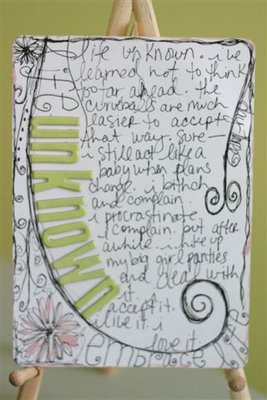 life is known. i've
learned not to think
so far ahead. the
curveballs are much
easier to accept
that way. sure—
i still act like a
baby when plans
change. i bitch
and complain.
i procrastinate.
i complain. but after
awhile. i hike up
my big girl panties
and deal with
it. i
accept it.
i like it. i
love it.
unknown
embrace